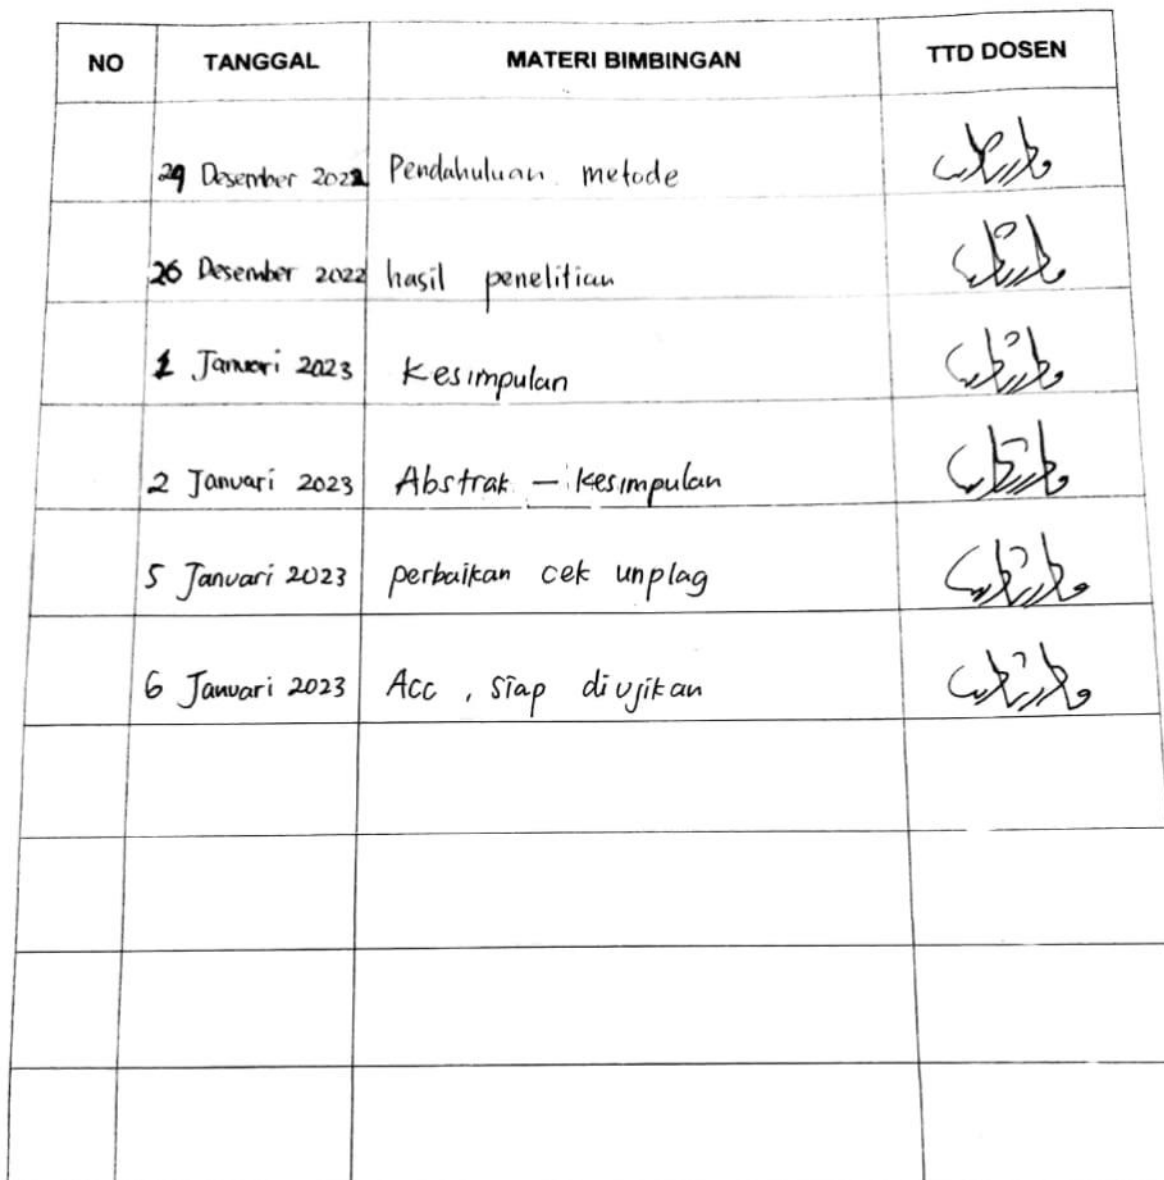 NO TANGGAL MATERI BIMBINGAN TTD DOSEN
29 Desember 2022 Pendahuluan metode
26 Desember 2022 hasil penelitian
1 Januari 2023 Kesimpulan
2 Januari 2023 Abstrak - kesimpulan
5 Januari 2023 perbaikan cek unplag
6 Januari 2023 Acc, siap diujikan